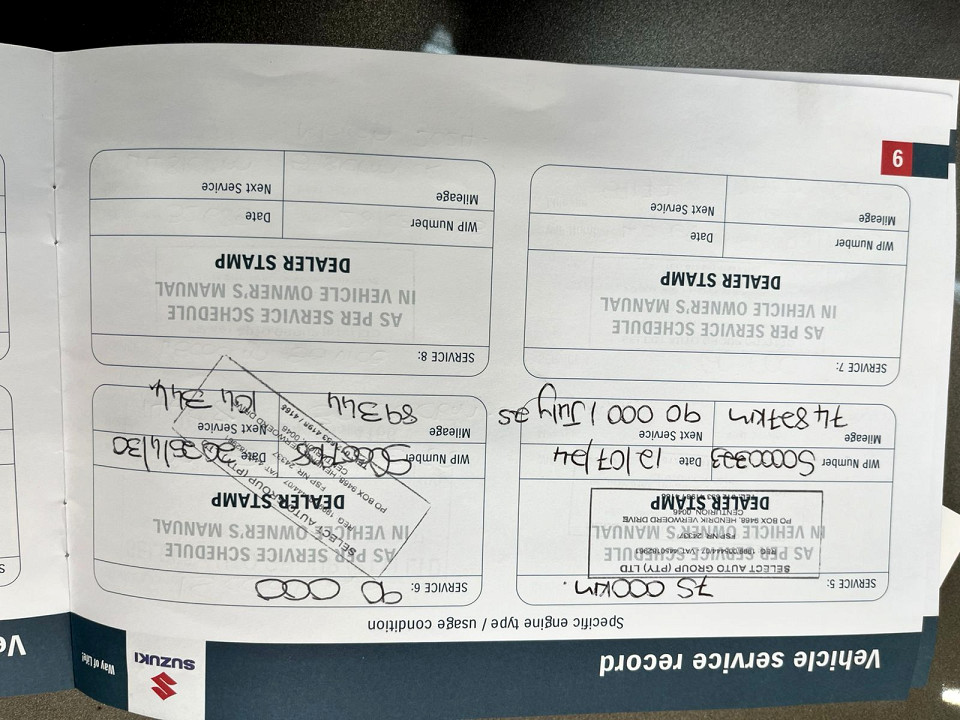 Vehicle service record
SUZUKI
Way of Life!
Ve
Specific engine type / usage condition
SERVICE 5: 75 000km.
AS PER SERVICE SCHEDULE
IN VEHICLE OWNER'S MANUAL
DEALER STAMP
SELECT AUTO GROUP (PTY) LTD
FSP NR 24337
PO BOX 9468, HENDRIK VERWOERD DRIVE
CENTURION, 0046
WIP Number S0000323 Date 12/07/24
Mileage 74 827km Next Service 90 000 / July 25
SERVICE 6: 90 000
AS PER SERVICE SCHEDULE
IN VEHICLE OWNER'S MANUAL
DEALER STAMP
SELECT AUTO GROUP (PTY)
FSP NR 24337
PO BOX 9468
CENTURION, 0046
WIP Number Date 2025/4/30
Mileage 89344 Next Service 104 344
SERVICE 7:
AS PER SERVICE SCHEDULE
IN VEHICLE OWNER'S MANUAL
DEALER STAMP
WIP Number Date
Mileage Next Service
SERVICE 8:
AS PER SERVICE SCHEDULE
IN VEHICLE OWNER'S MANUAL
DEALER STAMP
WIP Number Date
Mileage Next Service
6